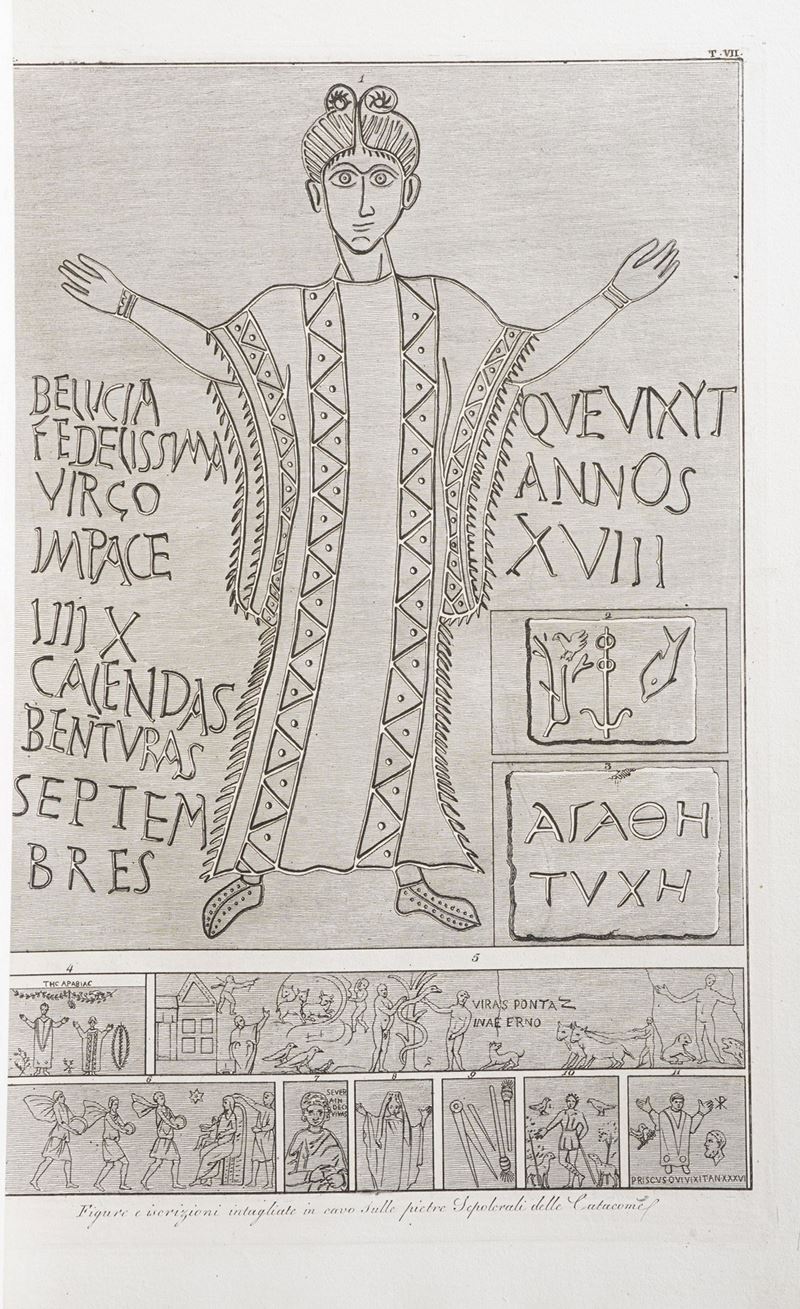 T. VII.
1
BELLICIA
FEDELISSIMA
VIRGO
IMPACE
IIII X
CALENDAS
BENTURAS
SEPTEM
BRES
QVE VIXYT
ANNOS
XVIII
2
3
ΑΓΑΘΗ
ΤVΧΗ
4
5
THC APABIAC
VIRAS PONTAZ
INAE ERNO
6
7
8
9
10
11
SEVER
DEO
VIVAS
PRISCVS QVI VIXIT AN XXXVI
Figure e iscrizioni intagliate in cavo sulle pietre Sepolcrali delle Catacombe